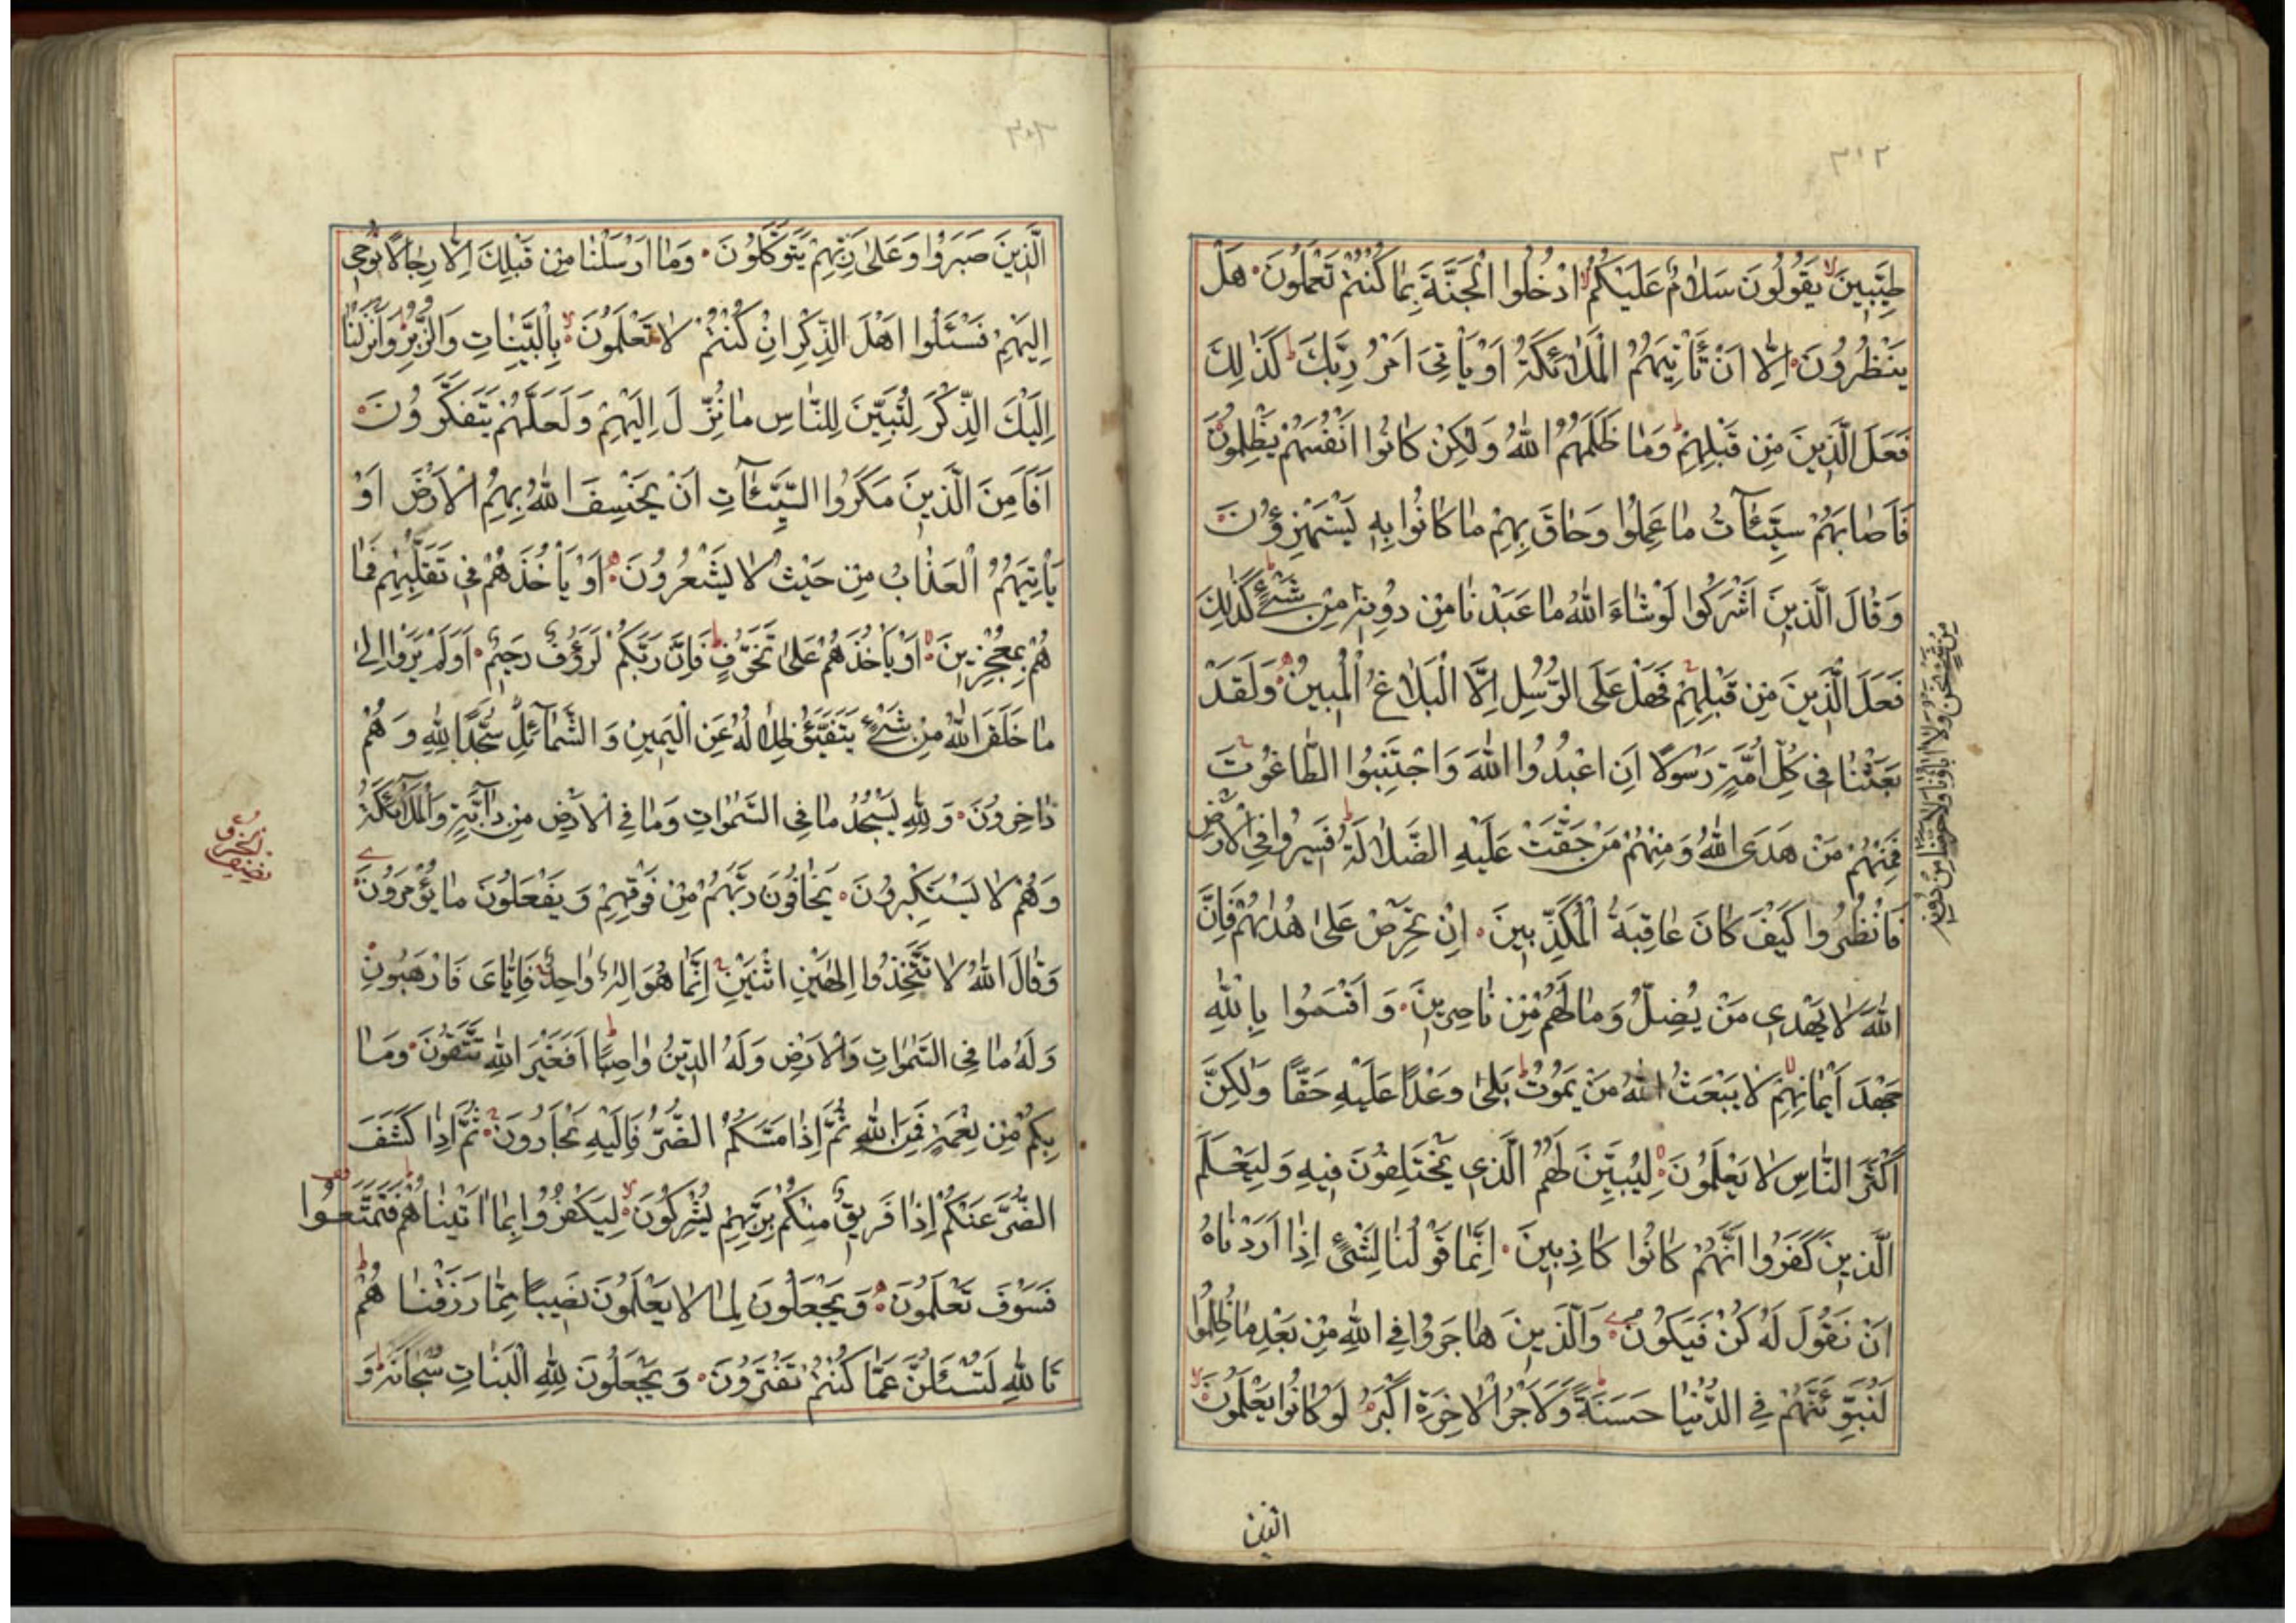 ٣١٢
طَيِّبِينَ يَقُولُونَ سَلَامٌ عَلَيْكُمُ ادْخُلُوا الْجَنَّةَ بِمَا كُنْتُمْ تَعْمَلُونَ هَلْ
يَنْظُرُونَ إِلَّا أَنْ تَأْتِيَهُمُ الْمَلَائِكَةُ أَوْ يَأْتِيَ أَمْرُ رَبِّكَ كَذَٰلِكَ
فَعَلَ الَّذِينَ مِنْ قَبْلِهِمْ وَمَا ظَلَمَهُمُ اللهُ وَلَكِنْ كَانُوا أَنْفُسَهُمْ يَظْلِمُونَ
فَأَصَابَهُمْ سَيِّئَآتُ مَا عَمِلُوا وَحَاقَ بِهِمْ مَا كَانُوا بِهِ يَسْتَهْزِؤُنَ
وَقَالَ الَّذِينَ أَشْرَكُوا لَوْ شَاءَ اللهُ مَا عَبَدْنَا مِنْ دُونِهِ مِنْ شَيْءٍ كَذَٰلِكَ
مِنْ شَيْءٍ نَحْنُ وَلَا آبَاؤُنَا وَلَا حَرَّمْنَا مِنْ دُونِهِ
فَعَلَ الَّذِينَ مِنْ قَبْلِهِمْ فَهَلْ عَلَى الرُّسُلِ إِلَّا الْبَلَاغُ الْمُبِينُ وَلَقَدْ
بَعَثْنَا فِي كُلِّ أُمَّةٍ رَسُولًا أَنِ اعْبُدُوا اللهَ وَاجْتَنِبُوا الطَّاغُوتَ
فَمِنْهُمْ مَنْ هَدَى اللهُ وَمِنْهُمْ مَنْ حَقَّتْ عَلَيْهِ الضَّلَالَةُ فَسِيرُوا فِي الْأَرْضِ
فَانْظُرُوا كَيْفَ كَانَ عَاقِبَةُ الْمُكَذِّبِينَ إِنْ تَحْرِصْ عَلَىٰ هُدَاهُمْ فَإِنَّ
اللهَ لَا يَهْدِي مَنْ يُضِلُّ وَمَا لَهُمْ مِنْ نَاصِرِينَ وَأَقْسَمُوا بِاللهِ
جَهْدَ أَيْمَانِهِمْ لَا يَبْعَثُ اللهُ مَنْ يَمُوتُ بَلَىٰ وَعْدًا عَلَيْهِ حَقًّا وَلَكِنَّ
أَكْثَرَ النَّاسِ لَا يَعْلَمُونَ لِيُبَيِّنَ لَهُمُ الَّذِي يَخْتَلِفُونَ فِيهِ وَلِيَعْلَمَ
الَّذِينَ كَفَرُوا أَنَّهُمْ كَانُوا كَاذِبِينَ إِنَّمَا قَوْلُنَا لِشَيْءٍ إِذَا أَرَدْنَاهُ
أَنْ نَقُولَ لَهُ كُنْ فَيَكُونُ وَالَّذِينَ هَاجَرُوا فِي اللهِ مِنْ بَعْدِ مَا ظُلِمُوا
لَنُبَوِّئَنَّهُمْ فِي الدُّنْيَا حَسَنَةً وَلَأَجْرُ الْآخِرَةِ أَكْبَرُ لَوْ كَانُوا يَعْلَمُونَ
الَّذِينَ صَبَرُوا وَعَلَىٰ رَبِّهِمْ يَتَوَكَّلُونَ وَمَا أَرْسَلْنَا مِنْ قَبْلِكَ إِلَّا رِجَالًا نُوحِي
إِلَيْهِمْ فَسْئَلُوا أَهْلَ الذِّكْرِ إِنْ كُنْتُمْ لَا تَعْلَمُونَ بِالْبَيِّنَاتِ وَالزُّبُرِ وَأَنْزَلْنَا
إِلَيْكَ الذِّكْرَ لِتُبَيِّنَ لِلنَّاسِ مَا نُزِّلَ إِلَيْهِمْ وَلَعَلَّهُمْ يَتَفَكَّرُونَ
أَفَأَمِنَ الَّذِينَ مَكَرُوا السَّيِّئَآتِ أَنْ يَخْسِفَ اللهُ بِهِمُ الْأَرْضَ أَوْ
يَأْتِيَهُمُ الْعَذَابُ مِنْ حَيْثُ لَا يَشْعُرُونَ أَوْ يَأْخُذَهُمْ فِي تَقَلُّبِهِمْ فَمَا
هُمْ بِمُعْجِزِينَ أَوْ يَأْخُذَهُمْ عَلَىٰ تَخَوُّفٍ فَإِنَّ رَبَّكُمْ لَرَؤُفٌ رَحِيمٌ أَوَلَمْ يَرَوْا إِلَىٰ
مَا خَلَقَ اللهُ مِنْ شَيْءٍ يَتَفَيَّؤُ ظِلَالُهُ عَنِ الْيَمِينِ وَالشَّمَآئِلِ سُجَّدًا لِلَّهِ وَهُمْ
دَاخِرُونَ وَلِلَّهِ يَسْجُدُ مَا فِي السَّمٰوَاتِ وَمَا فِي الْأَرْضِ مِنْ دَآبَّةٍ وَالْمَلَآئِكَةُ
وَهُمْ لَا يَسْتَكْبِرُونَ يَخَافُونَ رَبَّهُمْ مِنْ فَوْقِهِمْ وَيَفْعَلُونَ مَا يُؤْمَرُونَ
وَقَالَ اللهُ لَا تَتَّخِذُوا إِلٰهَيْنِ اثْنَيْنِ إِنَّمَا هُوَ إِلٰهٌ وَاحِدٌ فَإِيَّايَ فَارْهَبُونِ
وَلَهُ مَا فِي السَّمٰوَاتِ وَالْأَرْضِ وَلَهُ الدِّينُ وَاصِبًا أَفَغَيْرَ اللهِ تَتَّقُونَ وَمَا
بِكُمْ مِنْ نِعْمَةٍ فَمِنَ اللهِ ثُمَّ إِذَا مَسَّكُمُ الضُّرُّ فَإِلَيْهِ تَجْأَرُونَ ثُمَّ إِذَا كَشَفَ
الضُّرَّ عَنْكُمْ إِذَا فَرِيقٌ مِنْكُمْ بِرَبِّهِمْ يُشْرِكُونَ لِيَكْفُرُوا بِمَا آتَيْنَاهُمْ فَتَمَتَّعُوا
فَسَوْفَ تَعْلَمُونَ وَيَجْعَلُونَ لِمَا لَا يَعْلَمُونَ نَصِيبًا مِمَّا رَزَقْنَاهُمْ
تَاللهِ لَتُسْئَلُنَّ عَمَّا كُنْتُمْ تَفْتَرُونَ وَيَجْعَلُونَ لِلَّهِ الْبَنَاتِ سُبْحَانَهُ وَ